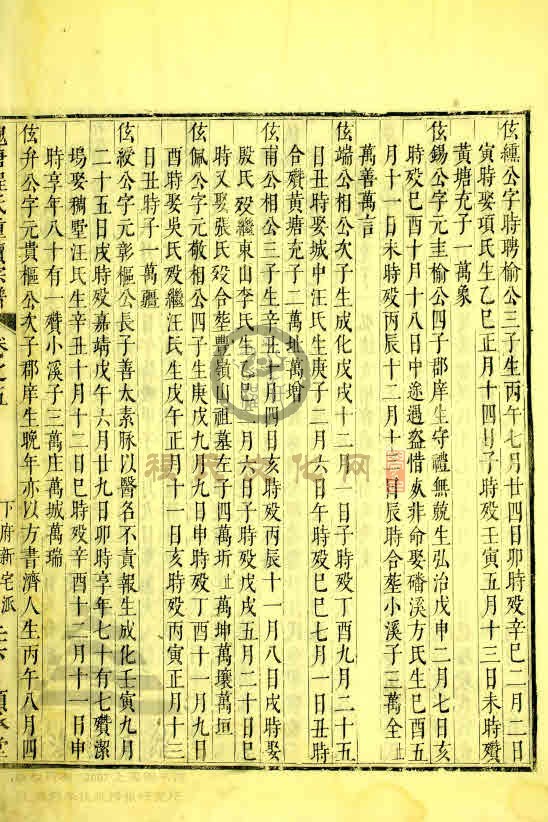 伭纁公字時聘榆公三子生丙午七月廿四日卯時殁辛巳二月二日
寅時娶項氏生乙巳正月十四日子時殁壬寅五月十三日未時殯
黃塘充子一萬象
伭錫公字元圭榆公四子郡庠生守禮無兢生弘治戊申二月七日亥
時殁己酉十月十八日中途遇盜惜欤非命娶磻溪方氏生己酉五
月十一日未時殁丙辰十二月十三日辰時合塟小溪子三萬全止
萬善萬言
伭端公相公次子生成化戊戌十二月一日子時殁丁酉九月二十五
日丑時娶城中汪氏生庚子二月六日午時殁己巳七月一日丑時
合殯黃塘充子二萬北萬增
伭甫公相公三子生辛丑十月四日亥時殁丙辰十一月八日戌時娶
殷氏殁繼東山李氏生乙巳三月六日子時殁戊戌五月二十日巳
時又娶張氏殁合塟豐嶺山祖墓左子四萬圻止萬坤萬壤萬垣
伭佩公字元敬相公四子生庚戌九月九日申時殁丁酉十一月九日
酉時娶吳氏殁繼汪氏生戊午正月十一日亥時殁丙寅正月十三
日丑時子一萬疆
伭綬公字元彰樞公長子善太素脉以醫名不責報生成化壬寅九月
二十五日戌時殁嘉靖戊午六月廿九日卯時享年七十有七殯潔
塢娶稠墅汪氏生辛丑十月十二日巳時殁辛酉十二月十一日申
時享年八十有一殯小溪子三萬庄萬城萬瑞
伭弁公字元貴樞公次子郡庠生晚年亦以方書濟人生丙午八月四
程氏重續宗譜 卷之五 下府新宅派
種民文化网